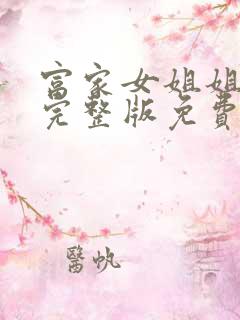 富家女姐姐
完整版免费
醫帆